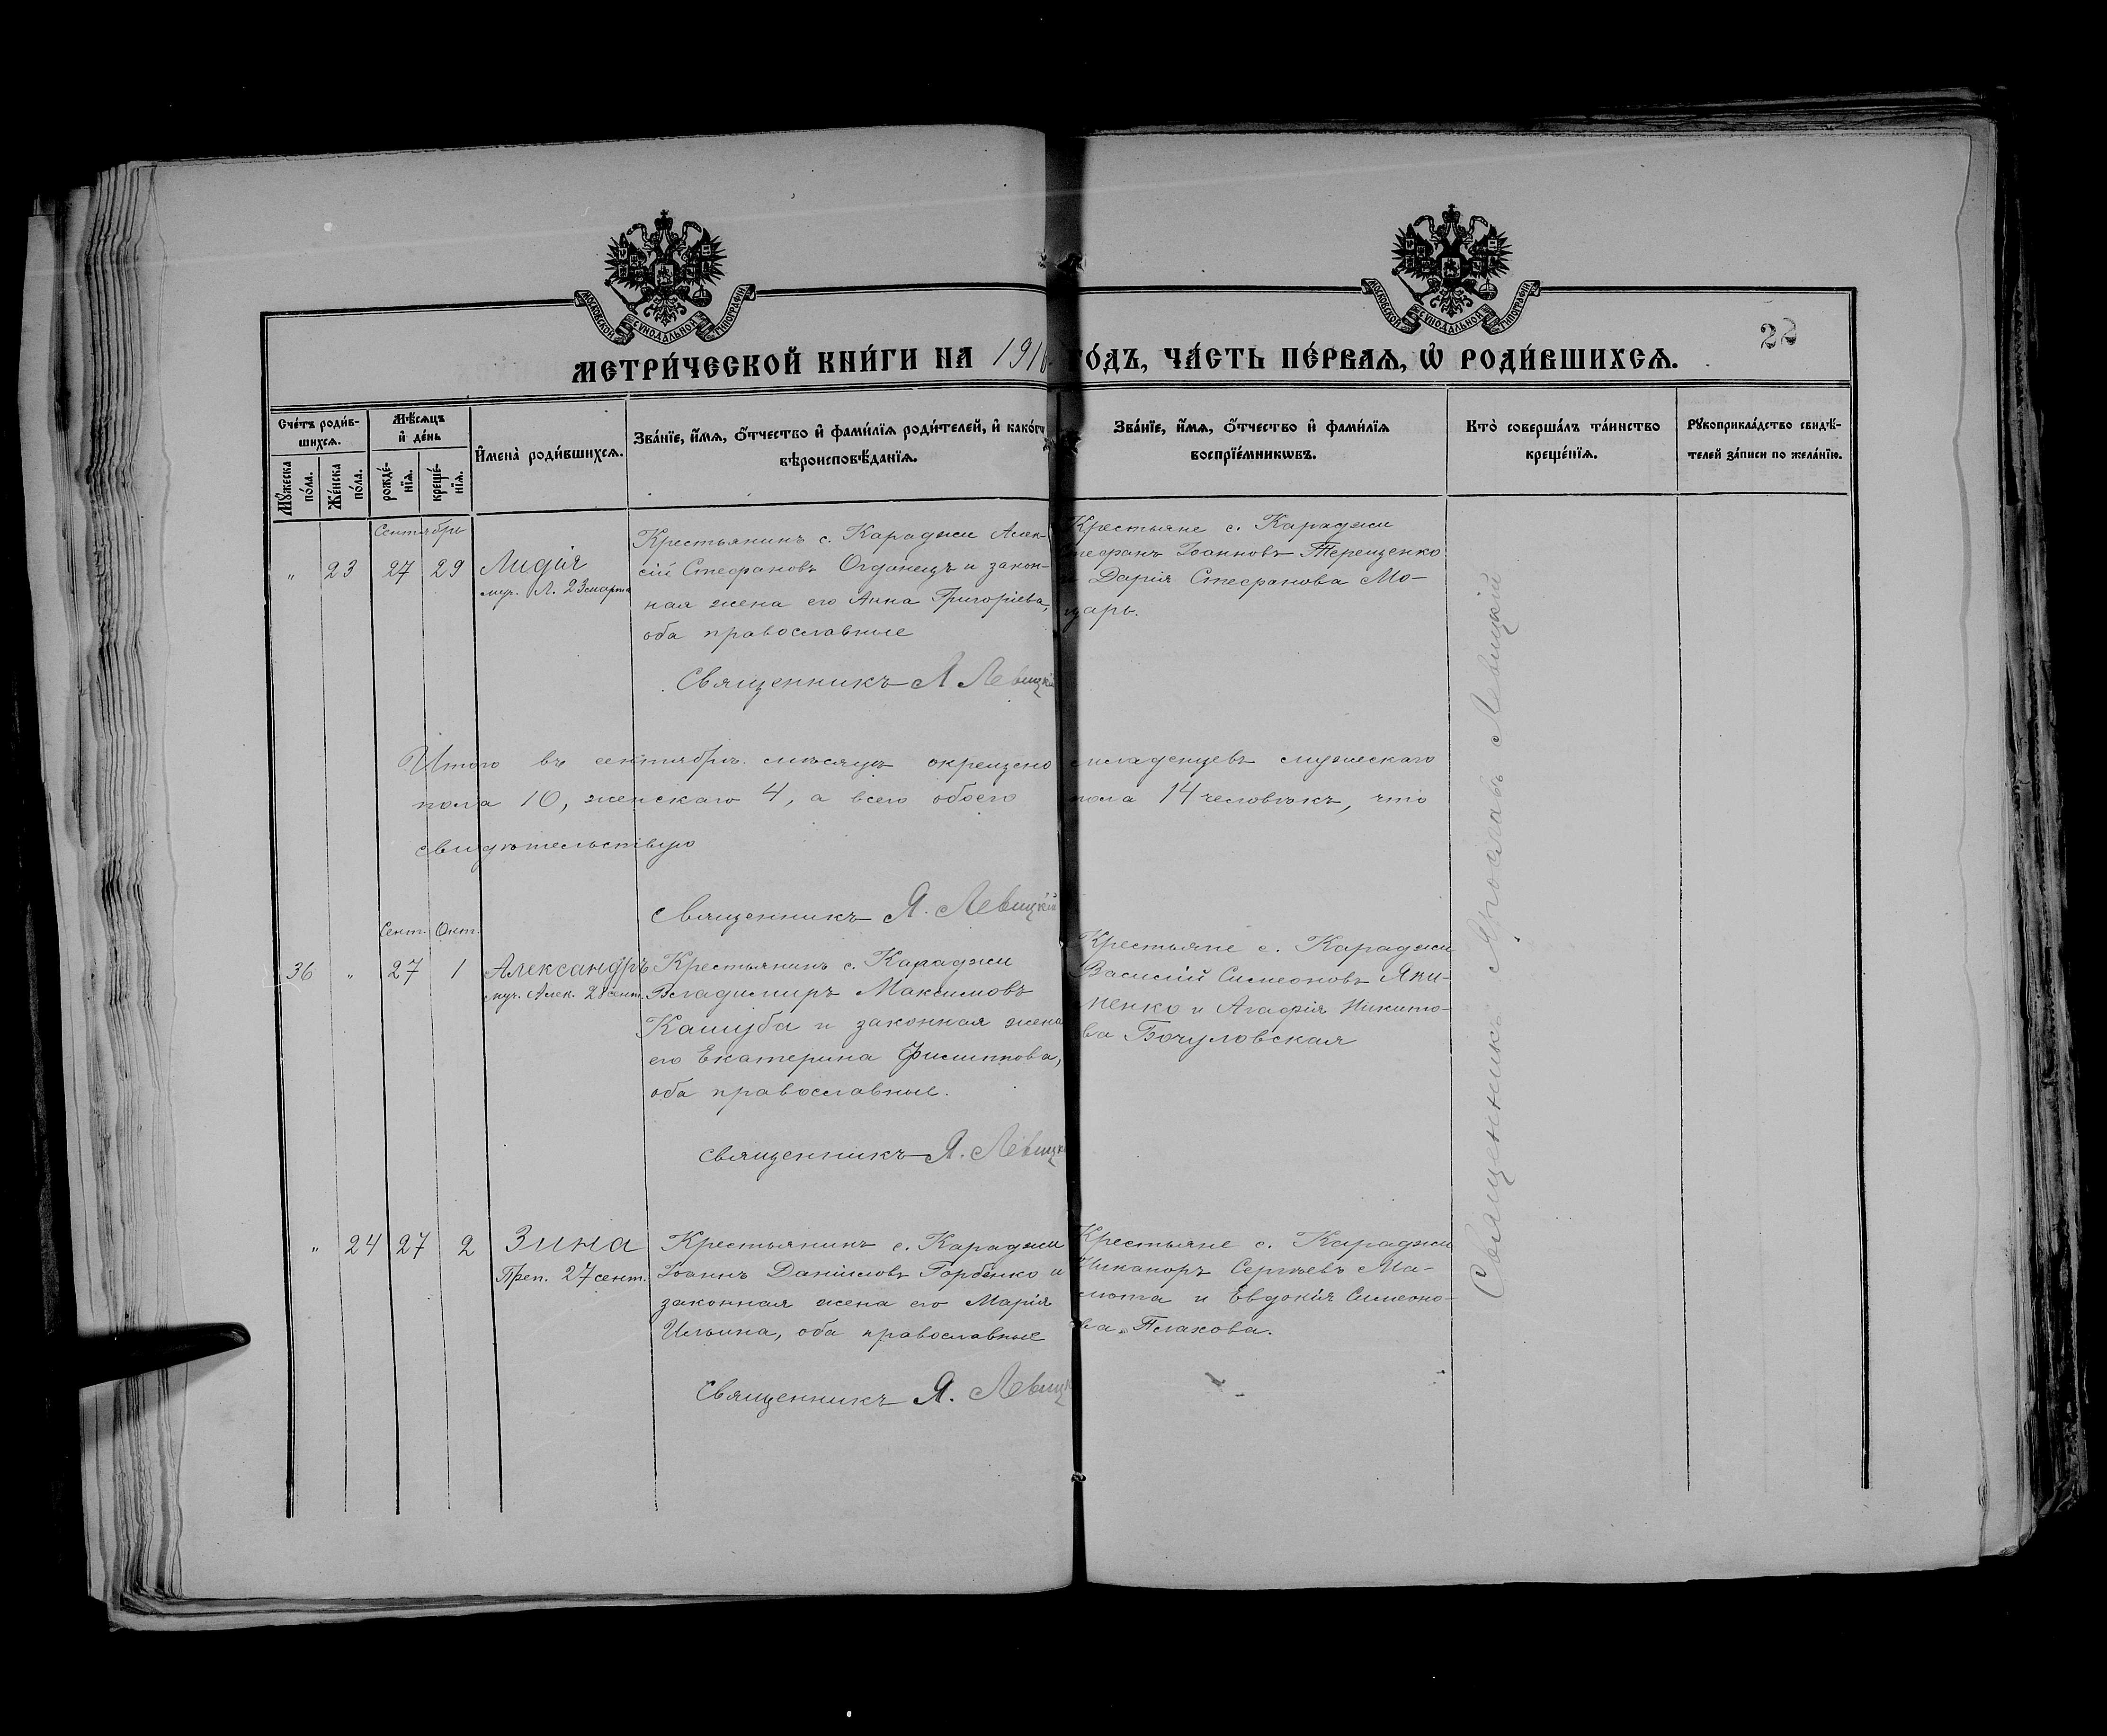 МОСКОВСКОЙ СѴНОДАЛЬНОЙ ТИПОГРАФІИ
МОСКОВСКОЙ СѴНОДАЛЬНОЙ ТИПОГРАФІИ
22
МЕТРИ́ЧЕСКОЙ КНИ́ГИ НА 191 ОДЪ, ЧА́СТЬ ПЕ́РВАѦ, Ѡ҆ РОДИ́ВШИХСѦ.
Сче́тъ роди́в-
шихсѧ.
Мꙋ́жеска по́ла.
Же́нска по́ла.
Мѣ́сѧцъ и҆ де́нь
рожде́-нїѧ.
креще́-нїѧ.
И҆мена̀ роди́вшихсѧ.
Зва́нїе, и҆́мѧ, ѻ҆́тчество и҆ фами́лїѧ роди́телей, и҆ како́гѡ
вѣроисповѣ́данїѧ.
Зва́нїе, и҆́мѧ, ѻ҆́тчество и҆ фами́лїѧ
воспрїе́мникѡвъ.
Кто̀ соверша́лъ та́инство
креще́нїѧ.
Рꙋкоприкла́дство свидѣ́-
телей за́писи по жела́нїю.
Сентябрь
" 23 27 29 Лидія
муч. Л. 23 марта
Крестьянинъ с. Караджи Алек-
сій Стефановъ Огданецъ и закон-
ная жена его Анна Григоріева,
оба православные
Священникъ Я Левицкій
Крестьяне с. Караджи
Стефанъ Іоанновъ Терещенко
и Дарія Стефанова Мо-
царь.
Итого въ сентябрѣ мѣсяцѣ окрещено младенцевъ мужескаго
пола 10, женскаго 4, а всего обоего пола 14 человѣкъ, что
свидѣтельствую
Священникъ Я. Левицкій
Сент. Окт.
36 " 27 1 Александръ
муч. Алек. 28 сент.
Крестьянинъ с. Караджи
Владимиръ Максимовъ
Кашуба и законная жена
его Екатерина Филиппова,
оба православные.
Священникъ Я. Левицкі
Крестьяне с. Караджи
Василій Симеоновъ Яки-
менко и Агафія Никито-
ва Бочуловская
" 24 27 2 Зина
Преп. 27 сент.
Крестьянинъ с. Караджи
Іоаннъ Даніиловъ Горбенко и
законная жена его Марія
Ильина, оба православные
Священникъ Я. Левицк
Крестьяне с. Караджи
Никаноръ Сергѣевъ Ма-
мота и Евдокія Симеоно-
ва Плахова.
Священникъ Ярославъ Левицкій